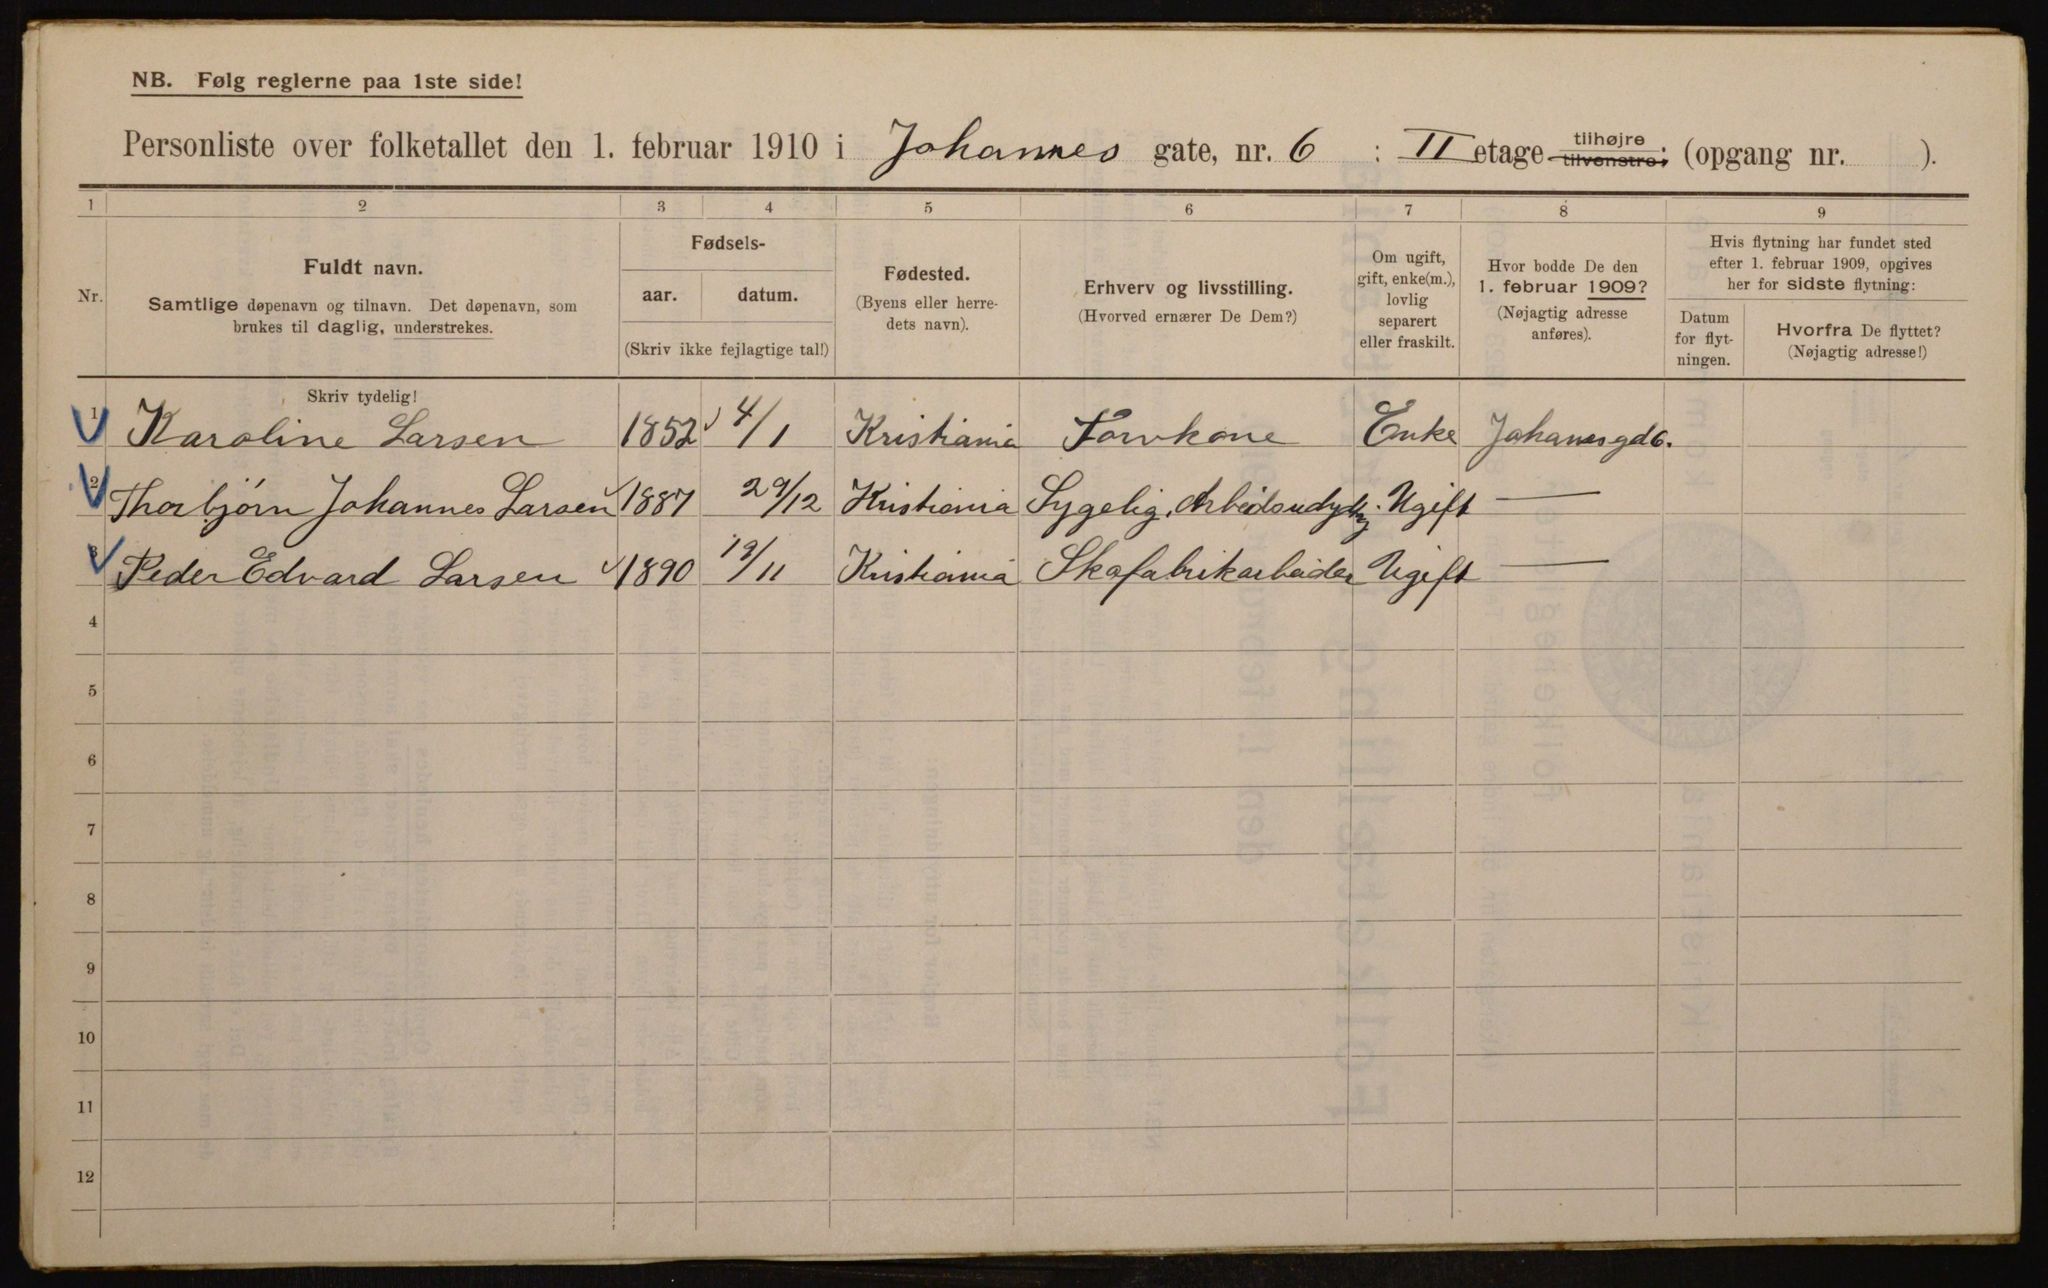 NB. Følg reglerne paa 1ste side!
Personliste over folketallet den 1. februar 1910 i Johannes gate, nr. 6 : II etage tilhøjre tilvenstre: (opgang nr. ).
1 2 3 4 5 6 7 8 9
Nr.
Fuldt navn.
Samtlige døpenavn og tilnavn. Det døpenavn, som
brukes til daglig, understrekes.
Fødsels-
aar. datum.
(Skriv ikke fejlagtige tal!)
Fødested.
(Byens eller herre-
dets navn).
Erhverv og livsstilling.
(Hvorved ernærer De Dem?)
Om ugift,
gift, enke(m.),
lovlig
separert
eller fraskilt.
Hvor bodde De den
1. februar 1909?
(Nøjagtig adresse
anføres).
Hvis flytning har fundet sted
efter 1. februar 1909, opgives
her for sidste flytning:
Datum
for flyt-
ningen.
Hvorfra De flyttet?
(Nøjagtig adresse!)
Skriv tydelig!
1 Karoline Larsen 1852 4/1 Kristiania Torvkone Enke Johannesgd 6.
2 Thorbjørn Johannes Larsen 1887 29/12 Kristiania Sygelig, Arbeidsudygtig. Ugift —
3 Peder Edvard Larsen 1890 19/11 Kristiania Skofabrikarbeider Ugift —
4
5
6
7
8
9
10
11
12